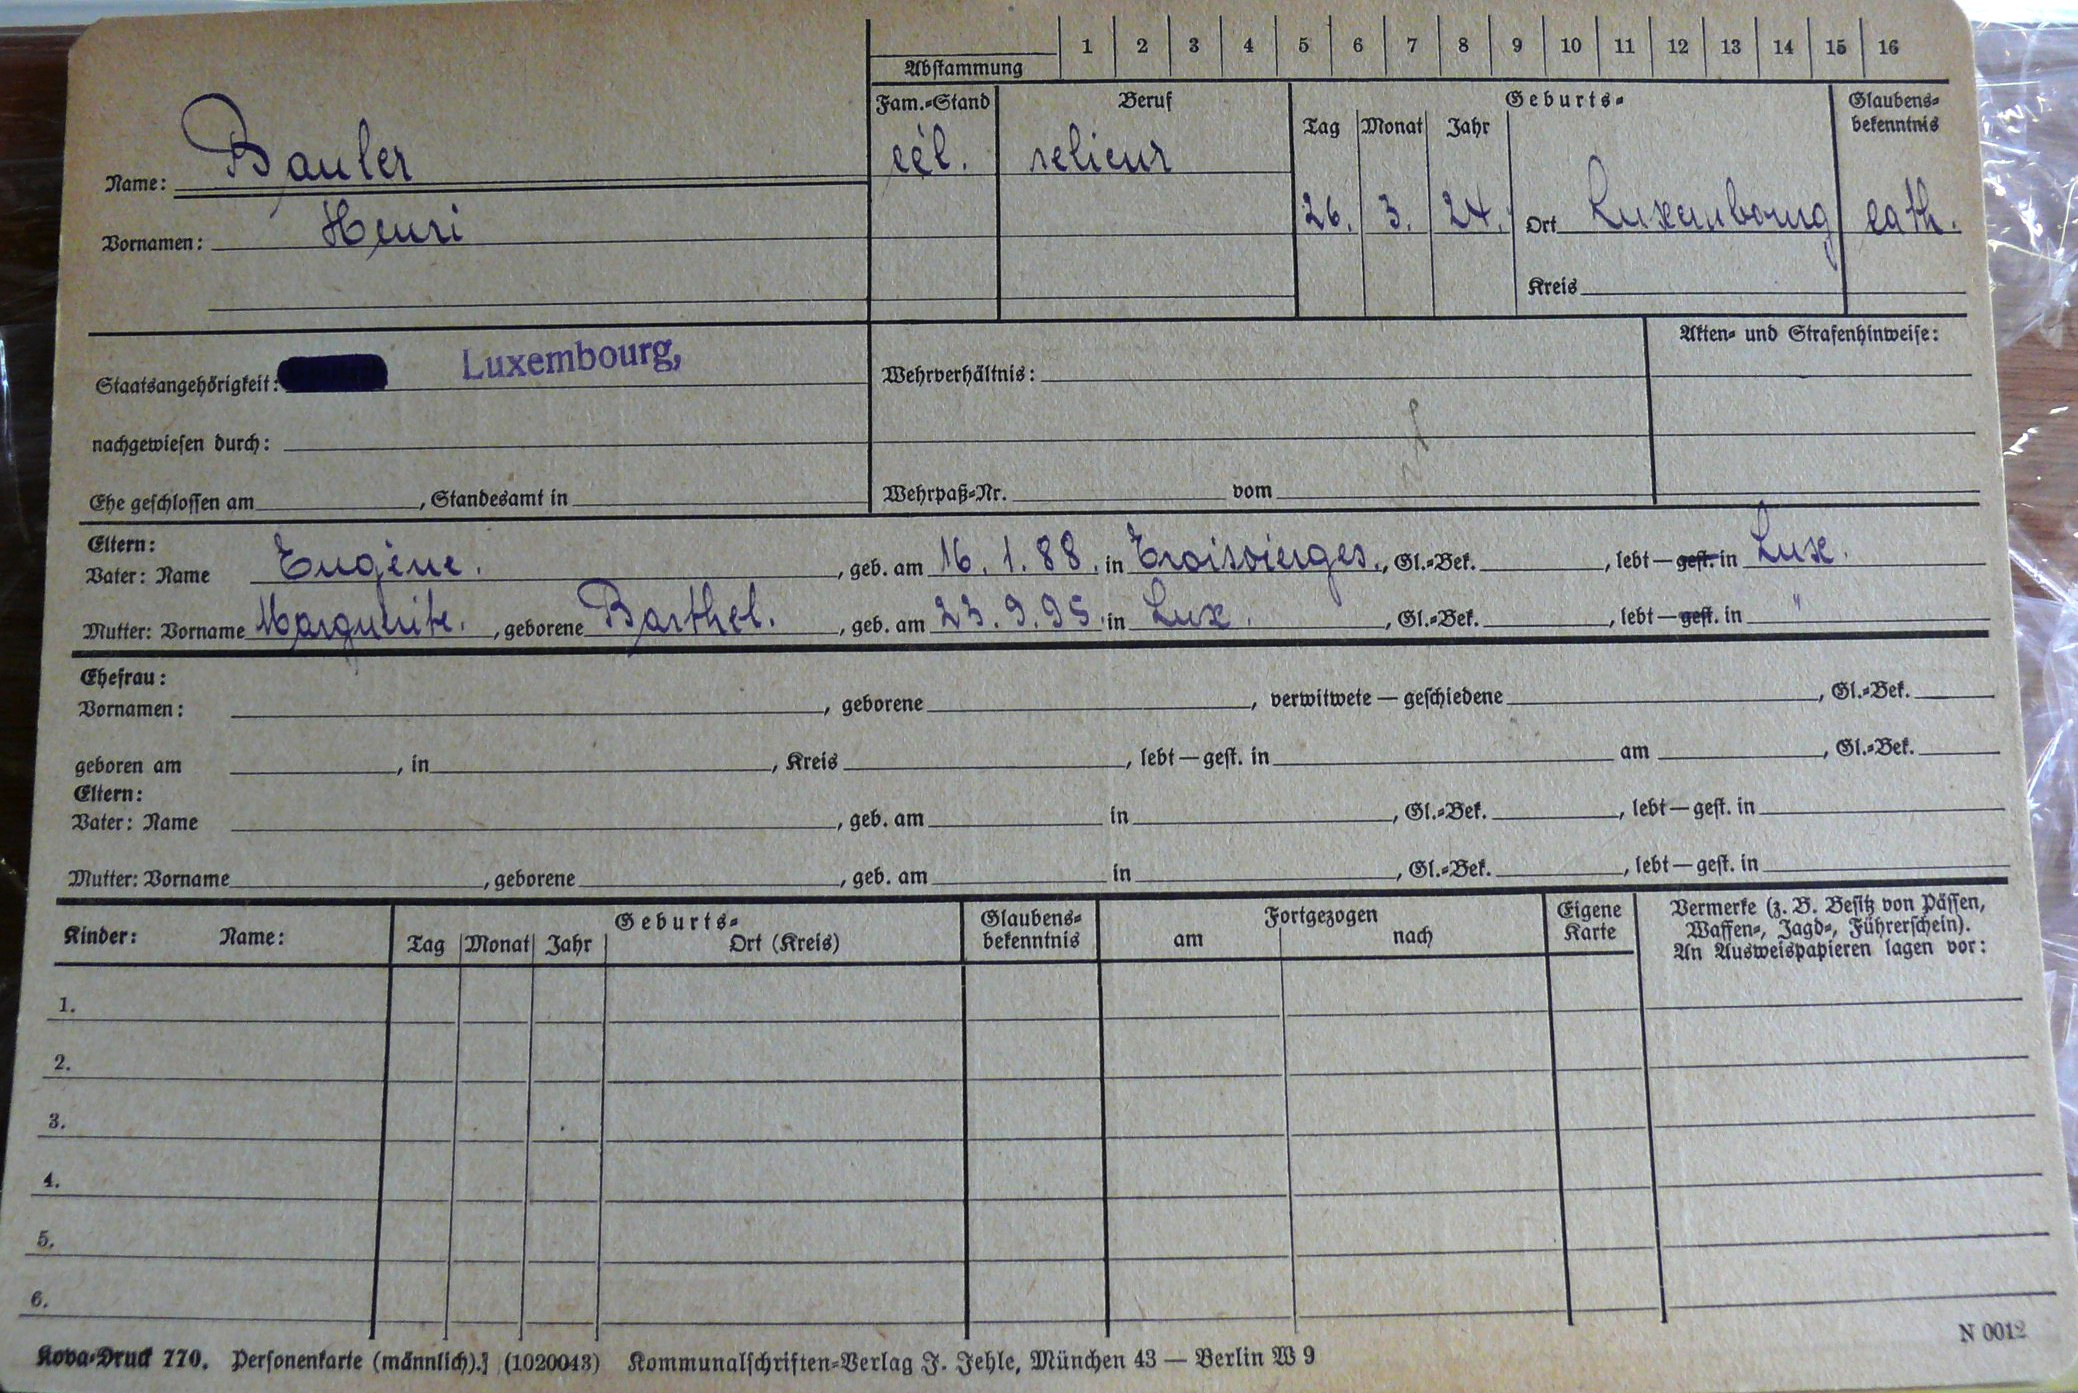 1 2 3 4 5 6 7 8 9 10 11 12 13 14 15 16
Abstammung
Fam.-Stand Beruf Geburts- Glaubens-
Tag Monat Jahr bekenntnis
Name: Bauler cél. relieur
Vornamen: Henri 26. 3. 24. Ort Luxembourg cath.
Kreis
Akten- und Strafenhinweise:
Staatsangehörigkeit: Luxembourg, Wehrverhältnis:
nachgewiesen durch:
Ehe geschlossen am , Standesamt in Wehrpaß-Nr. vom
Eltern:
Vater: Name Eugène. , geb. am 16. 1. 88. in Troisvierges., Gl.-Bek. , lebt — gest. in Lux.
Mutter: Vorname Marguerite. , geborene Barthel. , geb. am 23. 9. 95. in Lux. , Gl.-Bek. , lebt — gest. in "
Ehefrau:
Vornamen: , geborene , verwitwete — geschiedene , Gl.-Bek.
geboren am , in , Kreis , lebt — gest. in am , Gl.-Bek.
Eltern:
Vater: Name , geb. am in , Gl.-Bek. , lebt — gest. in
Mutter: Vorname , geborene , geb. am in , Gl.-Bek. , lebt — gest. in
Kinder: Name: Geburts- Glaubens- Fortgezogen Eigene Vermerke (z. B. Besitz von Pässen,
Tag Monat Jahr Ort (Kreis) bekenntnis am nach Karte Waffen-, Jagd-, Führerschein).
An Ausweispapieren lagen vor:
1.
2.
3.
4.
5.
6.
N 0012
Kova-Druck 770. Personenkarte (männlich).] (1020043) Kommunalschriften-Verlag J. Jehle, München 43 — Berlin W 9